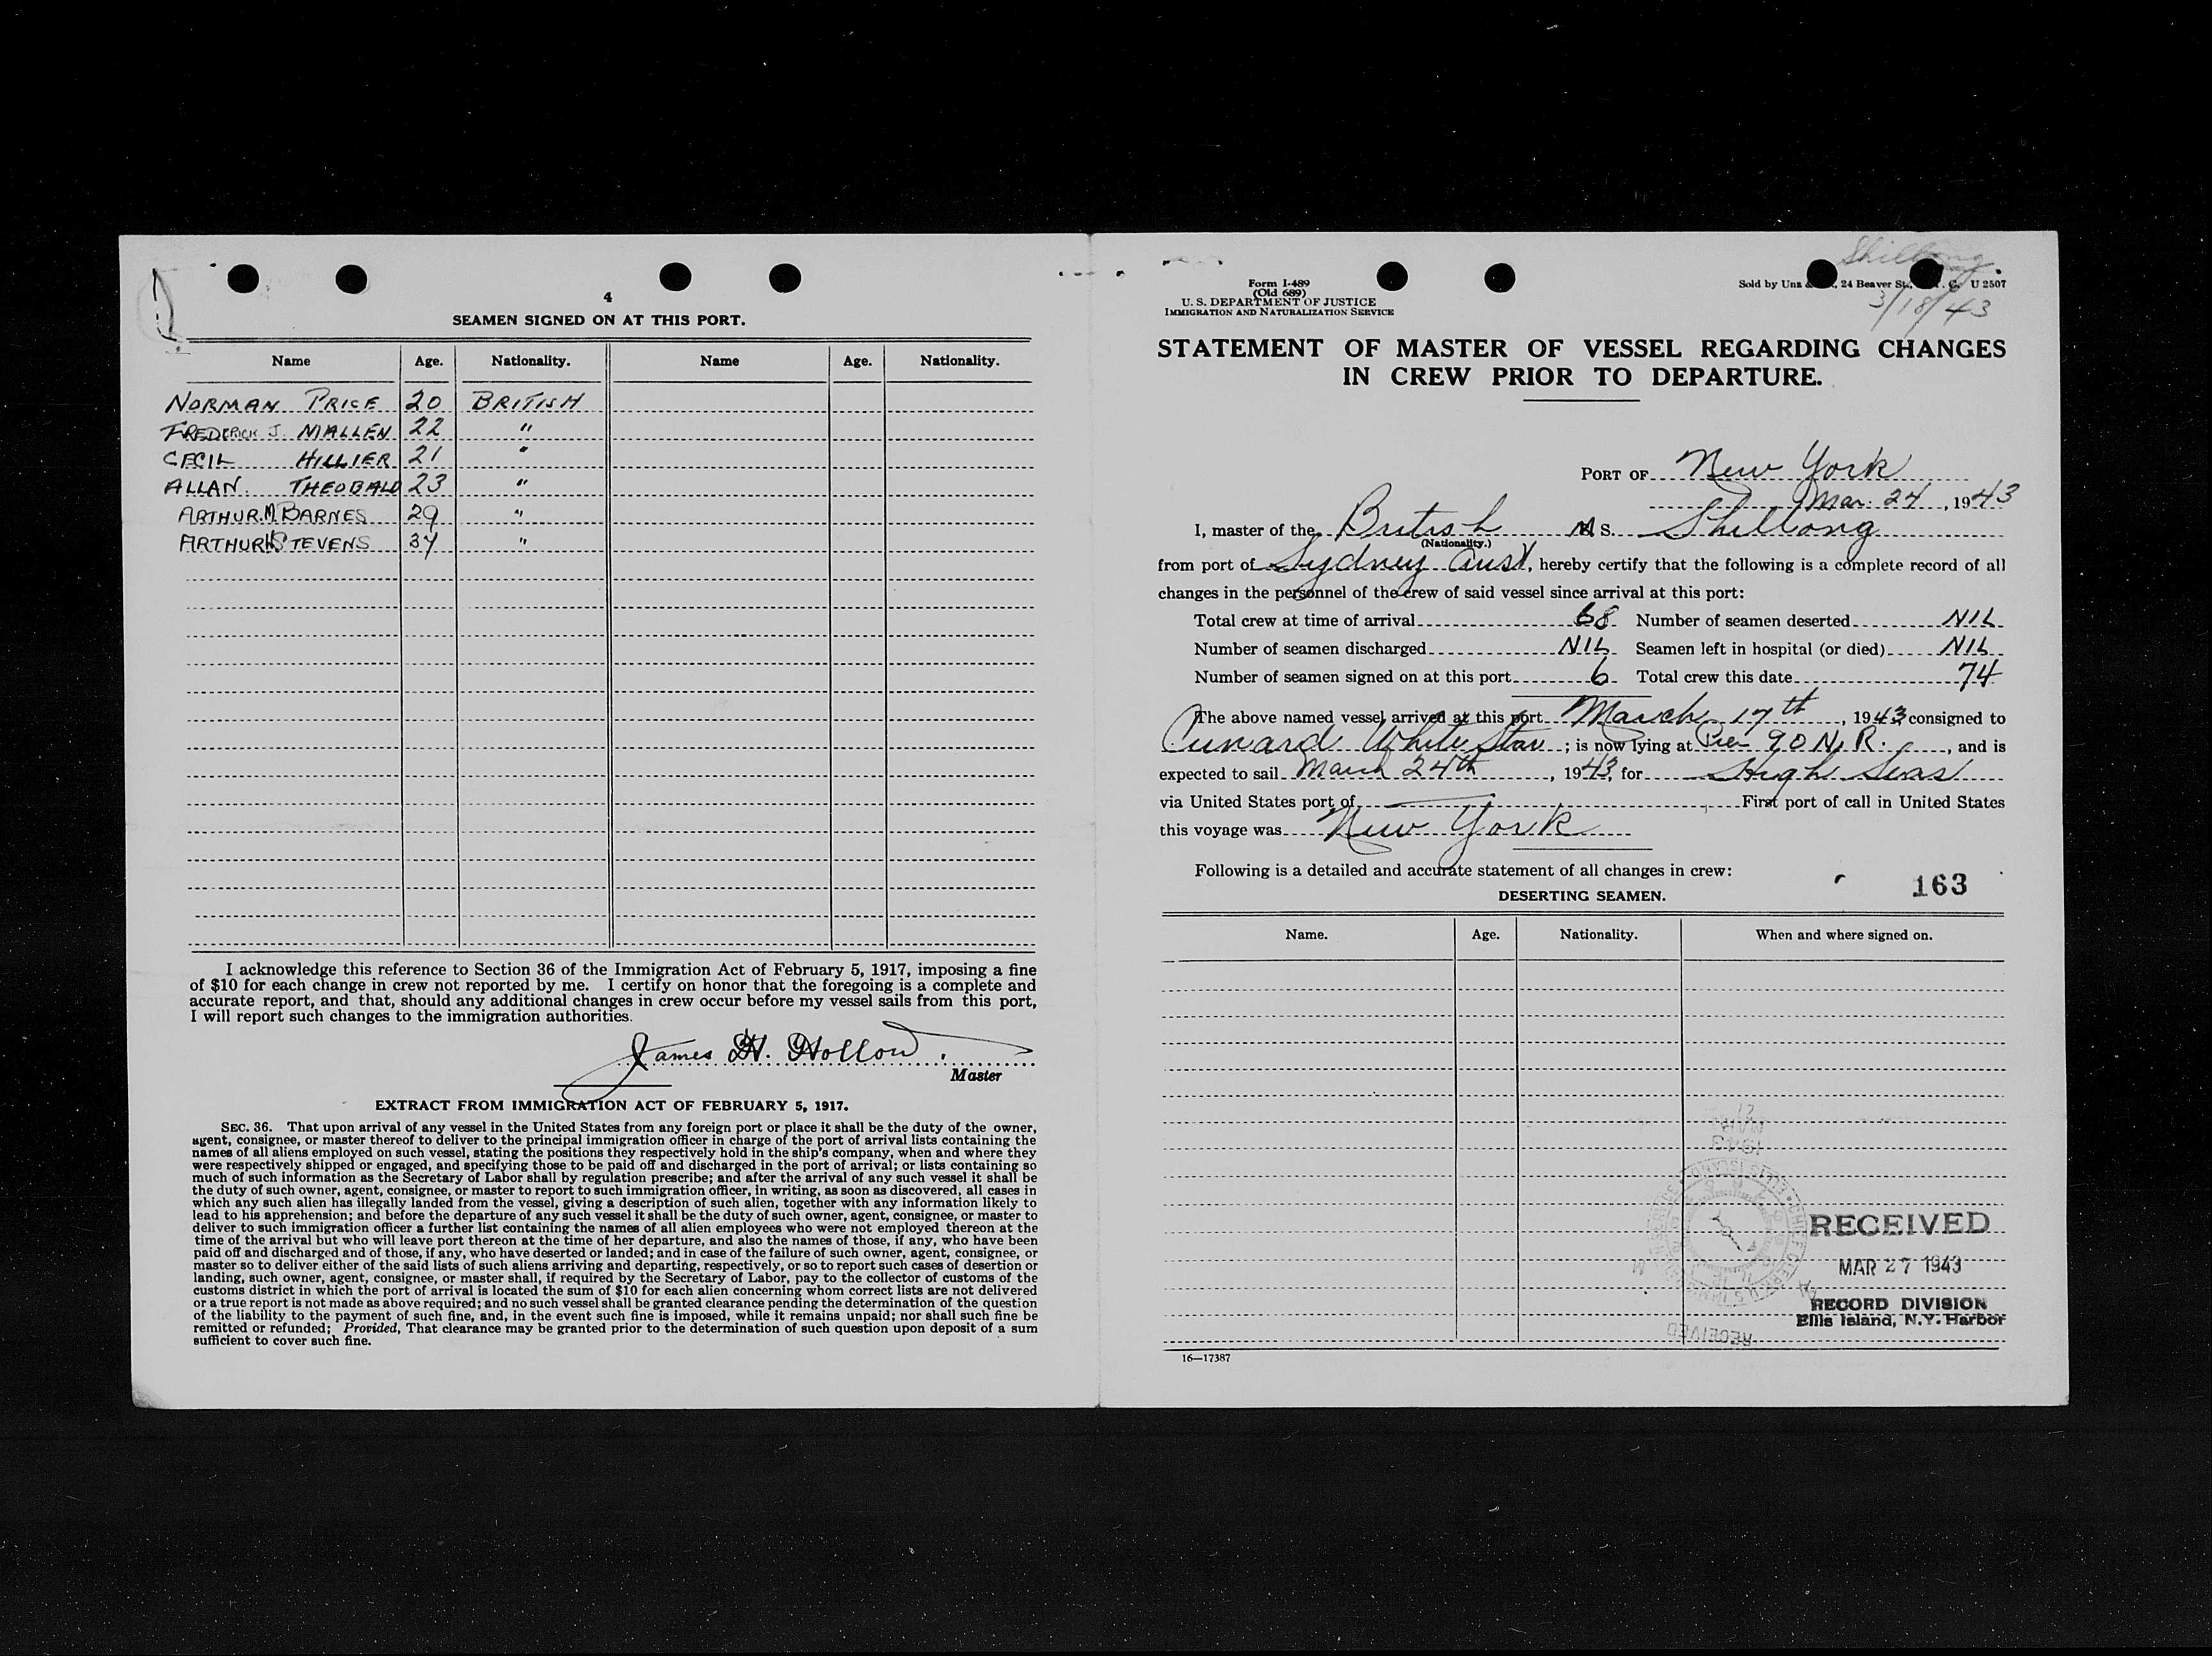 4
SEAMEN SIGNED ON AT THIS PORT.
Name Age. Nationality. Name Age. Nationality.
NORMAN PRICE 20 BRITISH
FREDERICK J. MALLEN 22 "
CECIL HILLIER 21 "
ALLAN. THEOBALD 23 "
ARTHUR.M. BARNES 29 "
ARTHUR H STEVENS 34 "
I acknowledge this reference to Section 36 of the Immigration Act of February 5, 1917, imposing a fine
of $10 for each change in crew not reported by me. I certify on honor that the foregoing is a complete and
accurate report, and that, should any additional changes in crew occur before my vessel sails from this port,
I will report such changes to the immigration authorities.
James H. Hollow.
Master
EXTRACT FROM IMMIGRATION ACT OF FEBRUARY 5, 1917.
SEC. 36. That upon arrival of any vessel in the United States from any foreign port or place it shall be the duty of the owner,
agent, consignee, or master thereof to deliver to the principal immigration officer in charge of the port of arrival lists containing the
names of all aliens employed on such vessel, stating the positions they respectively hold in the ship's company, when and where they
were respectively shipped or engaged, and specifying those to be paid off and discharged in the port of arrival; or lists containing so
much of such information as the Secretary of Labor shall by regulation prescribe; and after the arrival of any such vessel it shall be
the duty of such owner, agent, consignee, or master to report to such immigration officer, in writing, as soon as discovered, all cases in
which any such alien has illegally landed from the vessel, giving a description of such alien, together with any information likely to
lead to his apprehension; and before the departure of any such vessel it shall be the duty of such owner, agent, consignee, or master to
deliver to such immigration officer a further list containing the names of all alien employees who were not employed thereon at the
time of the arrival but who will leave port thereon at the time of her departure, and also the names of those, if any, who have been
paid off and discharged and of those, if any, who have deserted or landed; and in case of the failure of such owner, agent, consignee, or
master so to deliver either of the said lists of such aliens arriving and departing, respectively, or so to report such cases of desertion or
landing, such owner, agent, consignee, or master shall, if required by the Secretary of Labor, pay to the collector of customs of the
customs district in which the port of arrival is located the sum of $10 for each alien concerning whom correct lists are not delivered
or a true report is not made as above required; and no such vessel shall be granted clearance pending the determination of the question
of the liability to the payment of such fine, and, in the event such fine is imposed, while it remains unpaid; nor shall such fine be
remitted or refunded; Provided, That clearance may be granted prior to the determination of such question upon deposit of a sum
sufficient to cover such fine.
Shillong
3/18/43
Form I-489
(Old 689)
U. S. DEPARTMENT OF JUSTICE
IMMIGRATION AND NATURALIZATION SERVICE
Sold by Unz &, 24 Beaver St., . C. U 2507
STATEMENT OF MASTER OF VESSEL REGARDING CHANGES
IN CREW PRIOR TO DEPARTURE.
PORT OF New York
Mar. 24, 1943
I, master of the British M S. Shillong
(Nationality.)
from port of Sydney Aust, hereby certify that the following is a complete record of all
changes in the personnel of the crew of said vessel since arrival at this port:
Total crew at time of arrival 68 Number of seamen deserted NIL
Number of seamen discharged NIL Seamen left in hospital (or died) NIL
Number of seamen signed on at this port 6 Total crew this date 74
The above named vessel arrived at this port March 17th, 1943 consigned to
Cunard White Star; is now lying at Pier 90 N. R., and is
expected to sail March 24th, 1943, for High Seas
via United States port of First port of call in United States
this voyage was New York
Following is a detailed and accurate statement of all changes in crew:
163
DESERTING SEAMEN.
Name. Age. Nationality. When and where signed on.
RECEIVED
MAR 27 1943
RECORD DIVISION
Ellis Island, N.Y. Harbor
RECEIVED
16—17387